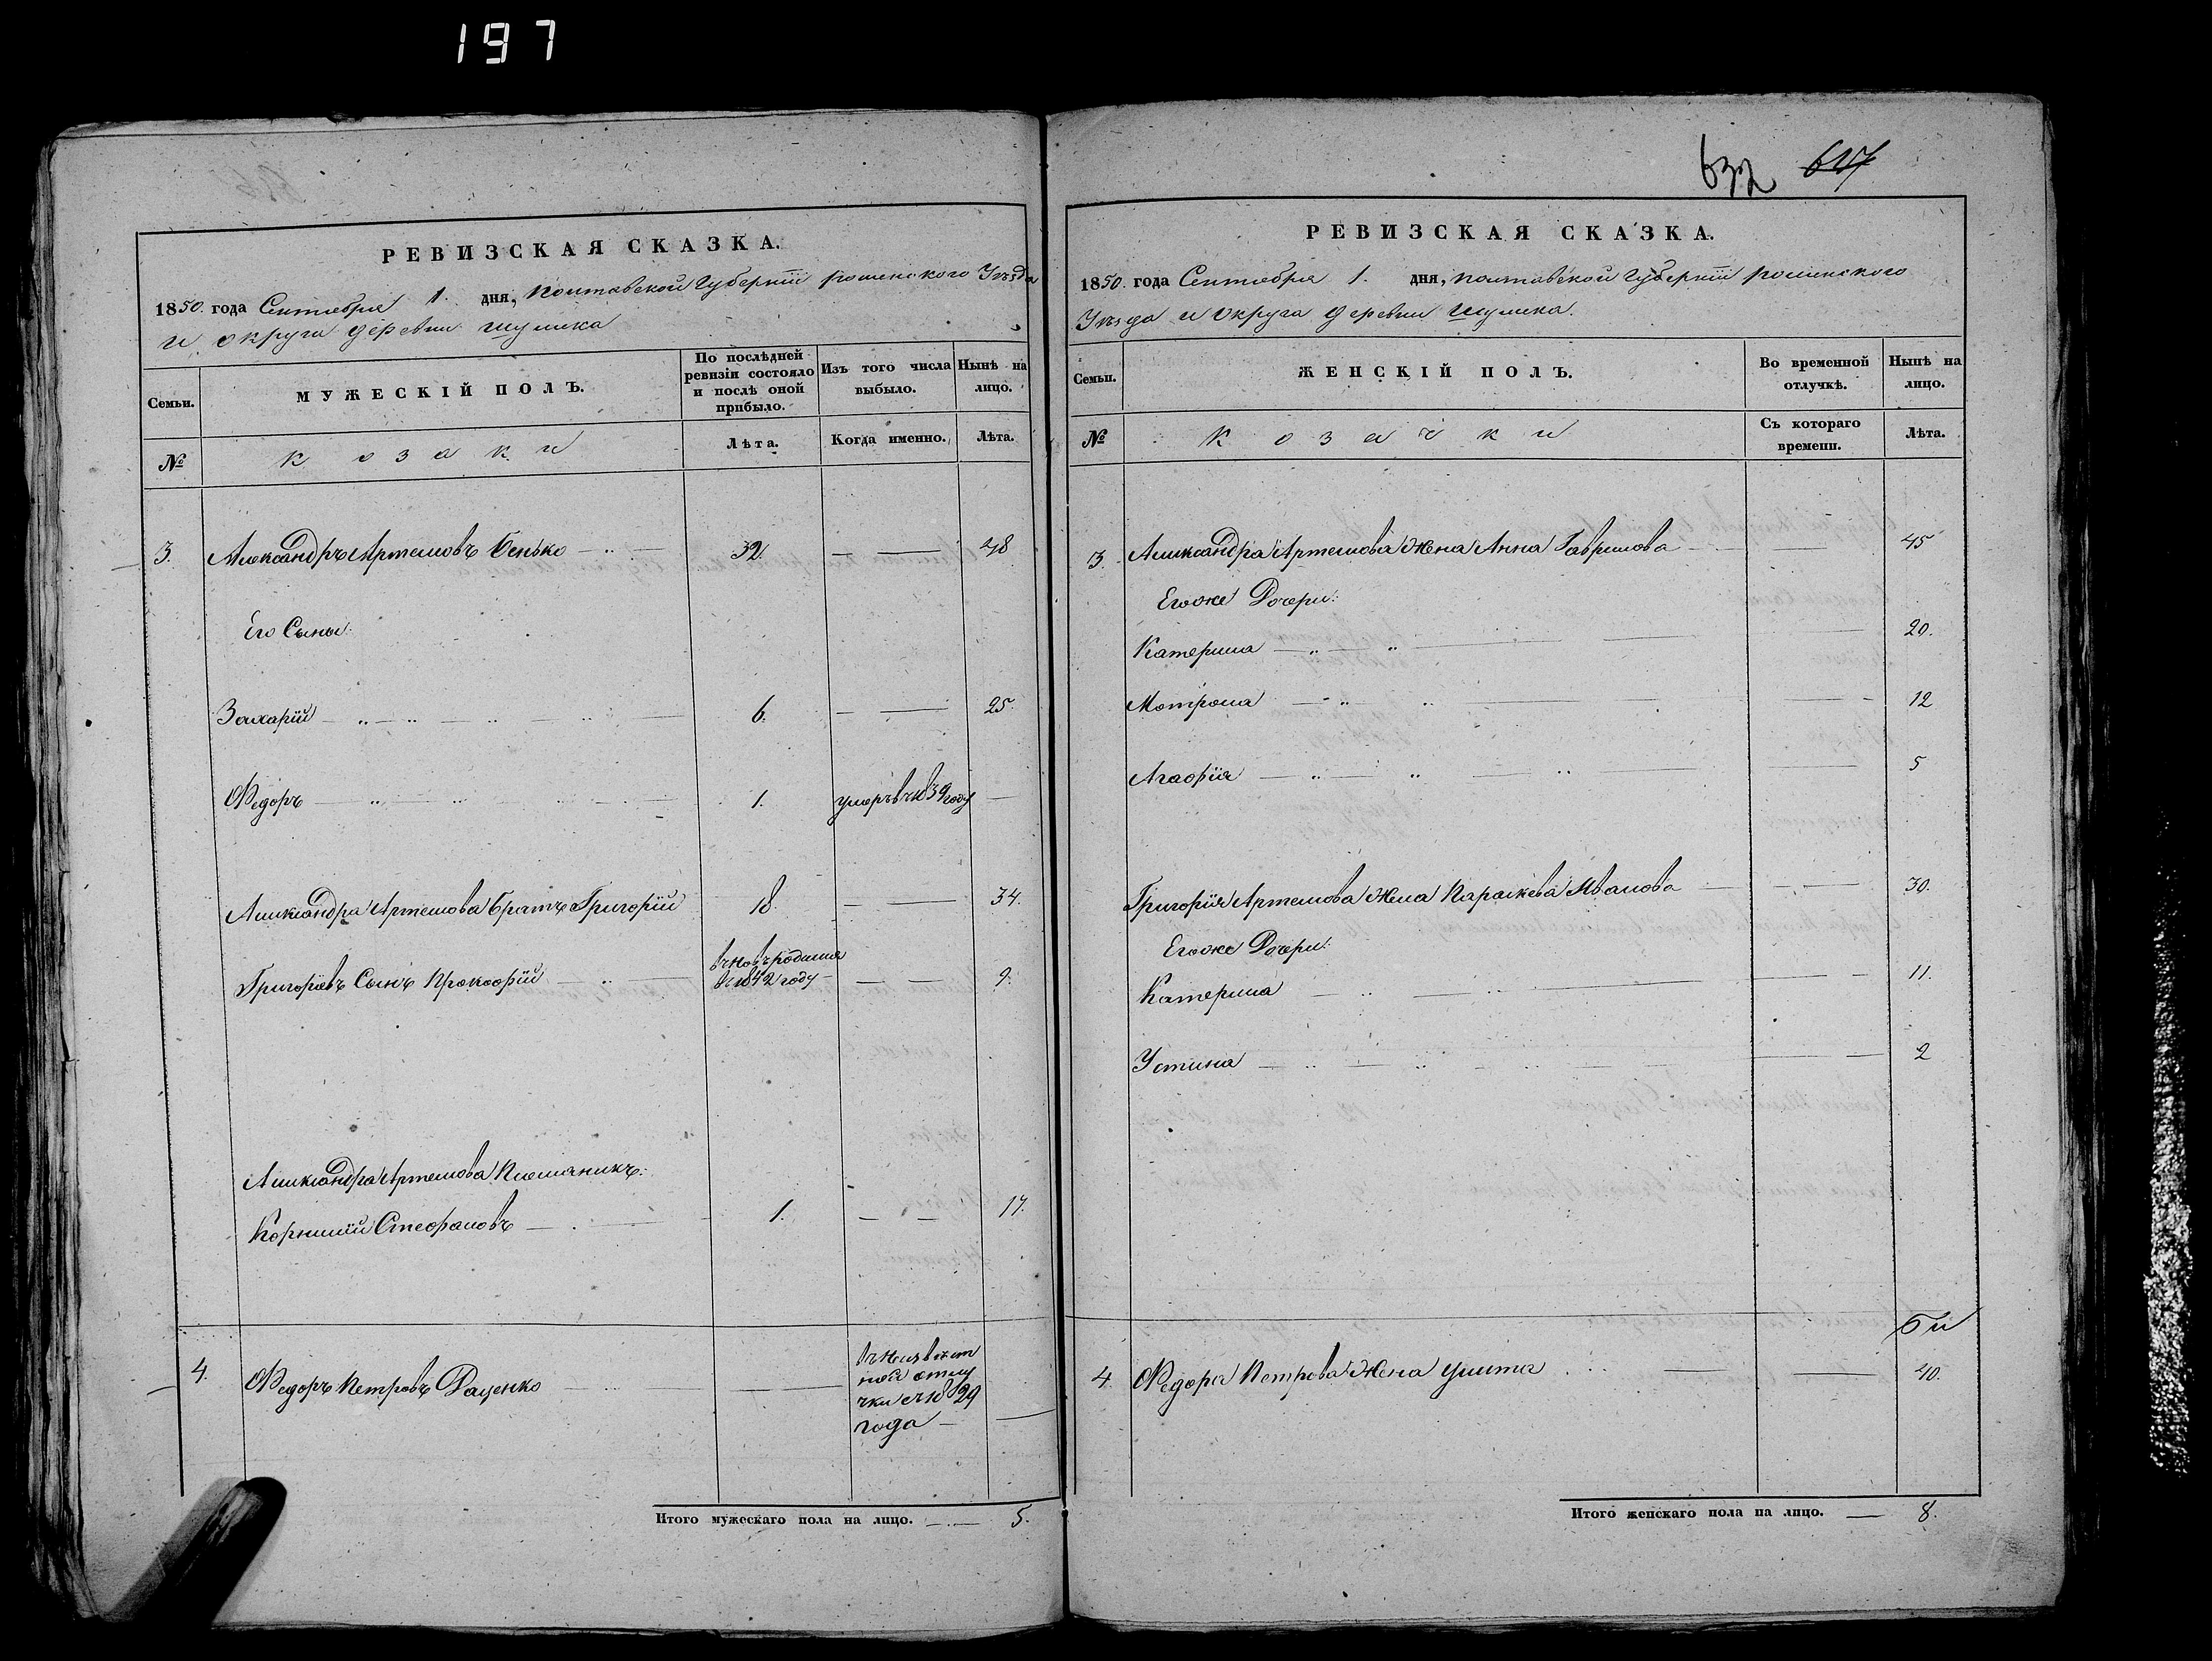 197
РЕВИЗСКАЯ СКАЗКА.
1850. года Сентября 1. дня, Полтавской Губерніи роменского Уѣзда
и округи деревни шумика
Семьи.
МУЖЕСКІЙ ПОЛЪ.
По послѣдней ревизіи состояло и послѣ оной прибыло.
Изъ того числа выбыло.
Нынѣ на лицо.
№
козаки
Лѣта.
Когда именно.
Лѣта.
3. Александръ Артемовъ Бенько 32 48
Его Сыны:
Захарій 6. 25.
Федоръ 1. умеръ въ 1839 году
Александра Артемова братъ Григорій 18. 34.
Григоріевъ Сынъ Прокофій въ новь родился въ 1842 году 9.
Александра Артемова Племяникъ:
Корнилій Стефановъ 1. 17.
4. Федоръ Петровъ Даценко
въ неизвѣст
ной отлу
чки съ 1829
года
Итого мужескаго пола на лицо. 5.
632 617
РЕВИЗСКАЯ СКАЗКА.
1850. года Сентября 1. дня, полтавской Губерніи роменского
Уѣзда и округа деревни шумика.
Семьи.
ЖЕНСКІЙ ПОЛЪ.
Во временной отлучкѣ.
Нынѣ на лицо.
№
козачки
Съ котораго времени.
Лѣта.
3. Александра Артемова Жена Анна Гаврилова 45
Егоже Дочери:
Катерина 20.
Мотрона 12
Агафія 5
Григорія Артемова Жена Параскева Иванова 30.
Егоже Дочери:
Катерина 11.
Устина 2
4. Федора Петрова Жена улита 40.
Итого женскаго пола на лицо. 8.